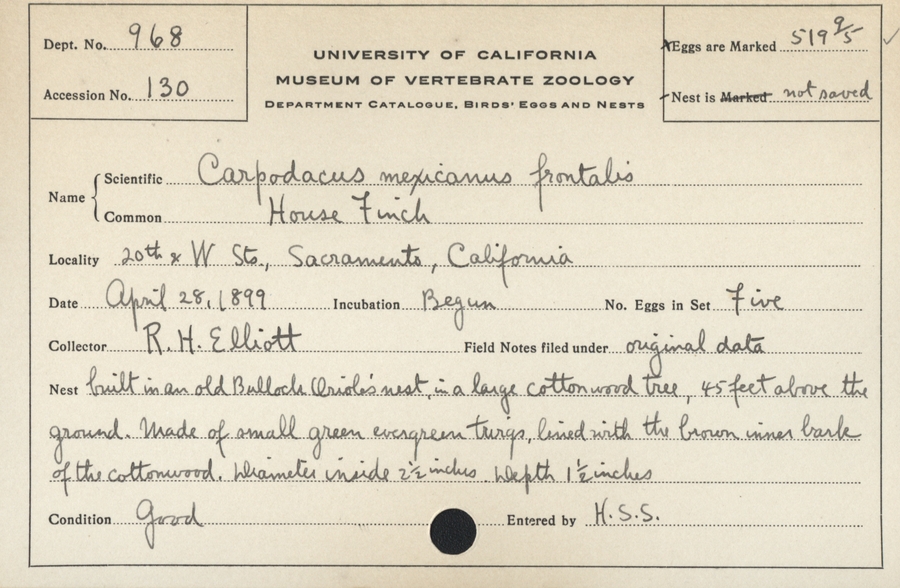 Dept. No. 968
Accession No. 130
UNIVERSITY OF CALIFORNIA
MUSEUM OF VERTEBRATE ZOOLOGY
DEPARTMENT CATALOGUE, BIRDS' EGGS AND NESTS
Eggs are Marked 519 9/5
Nest is Marked not saved
Name { Scientific Carpodacus mexicanus frontalis
Common House Finch
Locality 20th & W Sts., Sacramento, California
Date April 28, 1899 Incubation Begun No. Eggs in Set Five
Collector R. H. Elliott Field Notes filed under original data
Nest built in an old Bullock Oriole's nest, in a large cottonwood tree, 45 feet above the
ground. Made of small green evergreen twigs, lined with the brown inner bark
of the cottonwood. Diameter inside 2½ inches. Depth 1½ inches
Condition Good Entered by H.S.S.